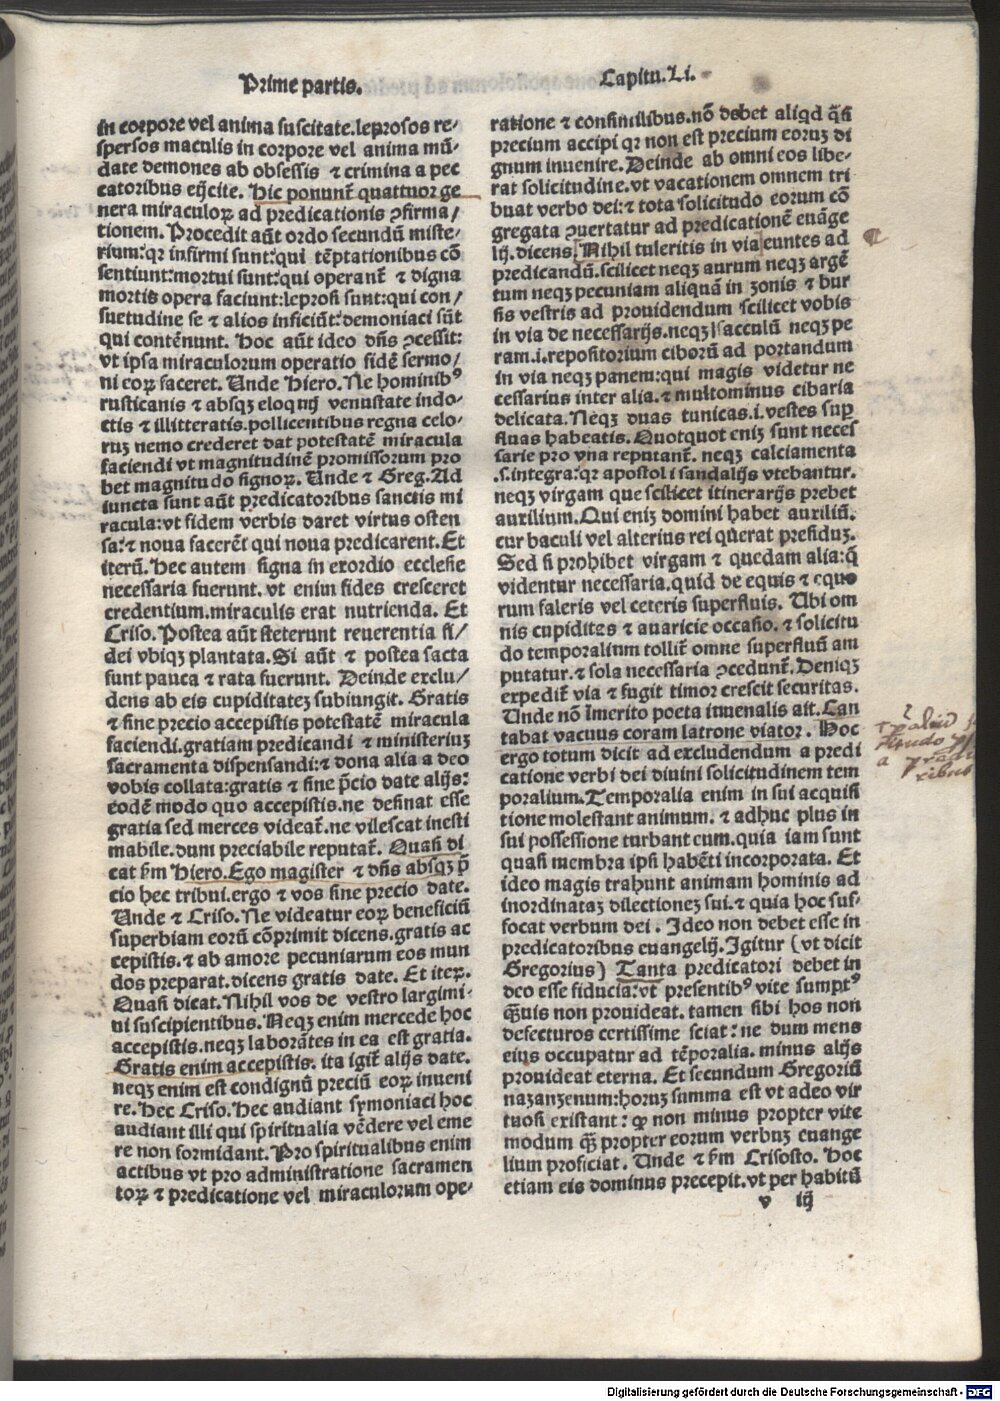 Prime partis.
Capitu.Li.
in corpore vel anima suscitate.leprosos re/
spersos maculis in corpore vel anima mū/
date demones ab obsessis ⁊ crimina a pec
catoribus eijcite. Hic ponunt̄ quattuor ge
nera miraculoꝝ ad predicationis ꝯfirma/
tionem. Procedit aūt ordo secundū miste/
rium:qr infirmi sunt:qui tēptationibus cō
sentiunt:mortui sunt:qui operant̄ ⁊ digna
mortis opera faciunt:leprosi sunt:qui con/
suetudine se ⁊ alios inficiūt:demoniaci sūt
qui contēnunt. Hoc aūt ideo dn̄s ꝯcessit:
vt ipsa miraculorum operatio fidē sermo/
ni eoꝝ faceret. Unde Hiero. Ne hominibꝰ
rusticanis ⁊ absqꝫ eloquij venustate indo/
ctis ⁊ illitteratis.pollicentibus regna celo/
ruꝫ nemo crederet dat potestatē miracula
faciendi vt magnitudinē promissorum pro
bet magnitudo signoꝝ. Unde ⁊ Greg. Ad
iuncta sunt aūt predicatoribus sanctis mi
racula:vt fidem verbis daret virtus osten
sa:⁊ noua facerēt qui noua predicarent. Et
iterū. Hec autem signa in exordio ecclesie
necessaria fuerunt. vt enim fides cresceret
credentium.miraculis erat nutrienda. Et
Criso. Postea aūt steterunt reuerentia fi/
dei vbiqꝫ plantata. Si aūt ⁊ postea facta
sunt pauca ⁊ rata fuerunt. Deinde exclu/
dens ab eis cupiditateꝫ subiungit. Gratis
⁊ sine precio accepistis potestatē miracula
faciendi.gratiam predicandi ⁊ ministeriuꝫ
sacramenta dispensandi:⁊ dona alia a deo
vobis collata:gratis ⁊ sine p̄cio date alijs:
eodē modo quo accepistis.ne desinat esse
gratia sed merces videat̄.ne vilescat inesti
mabile.dum preciabile reputat̄. Quasi di
cat ẜm Hiero.Ego magister ⁊ dn̄s absqꝫ p̄
cio hec tribui.ergo ⁊ vos sine precio date.
Unde ⁊ Criso. Ne videatur eoꝝ beneficiū
superbiam eorū cōprimit dicens.gratis ac
cepistis.⁊ ab amore pecuniarum eos mun
dos preparat.dicens gratis date. Et iteꝝ.
Quasi dicat. Nihil vos de vestro largimi/
ni suscipientibus. Neqꝫ enim mercede hoc
accepistis.neqꝫ laborātes in ea est gratia.
Gratis enim accepistis. ita igit̄ alijs date.
neqꝫ enim est condignū preciū eoꝝ inueni
re. Hec Criso. Hec audiant symoniaci hoc
audiant illi qui spiritualia vēdere vel eme
re non formidant. Pro spiritualibus enim
actibus vt pro administratione sacramen
toꝝ ⁊ predicatione vel miraculorum ope/
ratione ⁊ consimilibus.nō debet aliqd q̄si
precium accipi qr non est precium eoruꝫ di
gnum inuenire. Deinde ab omni eos libe/
rat solicitudine.vt vacationem omnem tri
buat verbo dei:⁊ tota solicitudo eorum cō
gregata ꝯuertatur ad predicationē euāge
lij.dicens.Nihil tuleritis in via euntes ad
predicandū.scilicet neqꝫ aurum neqꝫ argē
tum neqꝫ pecuniam aliquā in zonis ⁊ bur
sis vestris ad prouidendum scilicet vobis
in via de necessarijs.neqꝫ sacculū neqꝫ pe
ram.i.repositorium ciborū ad portandum
in via neqꝫ panem:qui magis videtur ne
cessarius inter alia.⁊ multominus cibaria
delicata. Neqꝫ duas tunicas.i.vestes suꝑ
fluas habeatis. Quotquot eniꝫ sunt neces
sarie pro vna reputant̄. neqꝫ calciamenta
.s.integra:qr apostoli sandalijs vtebantur.
neqꝫ virgam que scilicet itinerarijs prebet
auxilium. Qui eniꝫ domini habet auxiliū.
cur baculi vel alterius rei querat presiduꝫ.
Sed si prohibet virgam ⁊ quedam alia:q̄
videntur necessaria.quid de equis ⁊ equo
rum faleris vel ceteris superfluis. Ubi om
nis cupidites ⁊ auaricie occasio. ⁊ solicitu
do temporalium tollit̄ omne superfluū am
putatur.⁊ sola necessaria ꝯcedunt̄. Deniqꝫ
expedit̄ via ⁊ fugit timor crescit securitas.
Unde nō īmerito poeta iuuenalis ait.Can
tabat vacuus coram latrone viator. Hoc
ergo totum dicit ad excludendum a predi
catione verbi dei diuini solicitudinem tem
poralium. Temporalia enim in sui acquisi
tione molestant animum. ⁊ adhuc plus in
sui possessione turbant eum.quia iam sunt
quasi membra ipsi habēti incorporata. Et
ideo magis trahunt animam hominis ad
inordinataꝫ dilectioneꝫ sui.⁊ quia hoc suf/
focat verbum dei. Ideo non debet esse in
predicatoribus euangelij. Igitur (vt dicit
Gregorius) Tanta predicatori debet in
deo esse fiducia:vt presentibꝰ vite sumptꝰ
q̄uis non prouideat. tamen sibi hos non
defecturos certissime sciat: ne dum mens
eius occupatur ad tēporalia. minus alijs
prouideat eterna. Et secundum Gregoriū
nazanzenum:horuꝫ summa est vt adeo vir
tuosi existant: ꝙ non minus propter vite
modum q̄ꝫ propter eorum verbuꝫ euange
lium proficiat. Unde ⁊ ẜm Crisosto. Hoc
etiam eis dominus precepit.vt per habitū
v iij
Digitalisierung gefördert durch die Deutsche Forschungsgemeinschaft - DFG